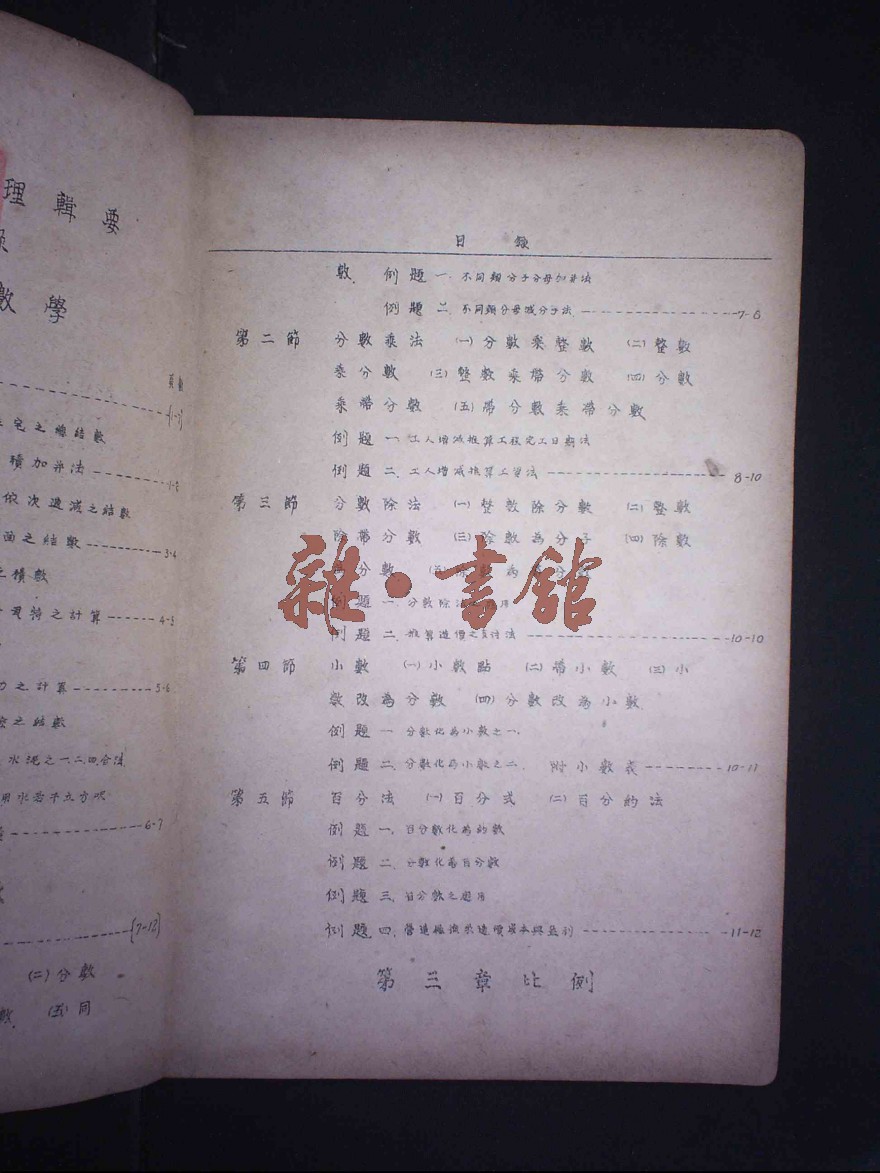 理輯要
數學
頁數
{1-7}
住宅之總結數
積加并法 1-2
依次遞減之結數
面之結數 3-4
之積數
之計算 4-5
力之計算 5-6
之結數
水泥之一二四合法
用水若干立方呎
6-7
{7-12}
(二)分數
數 (五)同
目錄
數 例題一.不同類分子分母加并法
例題二.不同類分母減分子法 7-8
第二節 分數乘法 (一)分數乘整數 (二)整數
乘分數 (三)整數乘帶分數 (四)分數
乘帶分數 (五)帶分數乘帶分數
例題一.工人增減推算工程完工日期法
例題二.工人增減推算工資法 8-10
第三節 分數除法 (一)整數除分數 (二)整數
除帶分數 (三)除數為分子 (四)除數
分數 (五)數為分
例題一.分數除法用
例題二.推算造價之法 10-10
第四節 小數 (一)小數點 (二)帶小數 (三)小
數改為分數 (四)分數改為小數
例題一.分數化為小數之一.
例題二.分數化為小數之二. 附小數表 10-11
第五節 百分法 (一)百分式 (二)百分的法
例題一.百分數化為的數
例題二.分數化為百分數
例題三.百分數之應用
例題四.營造廠求造價成本與益利 11-12
第三章比例
雜·書館